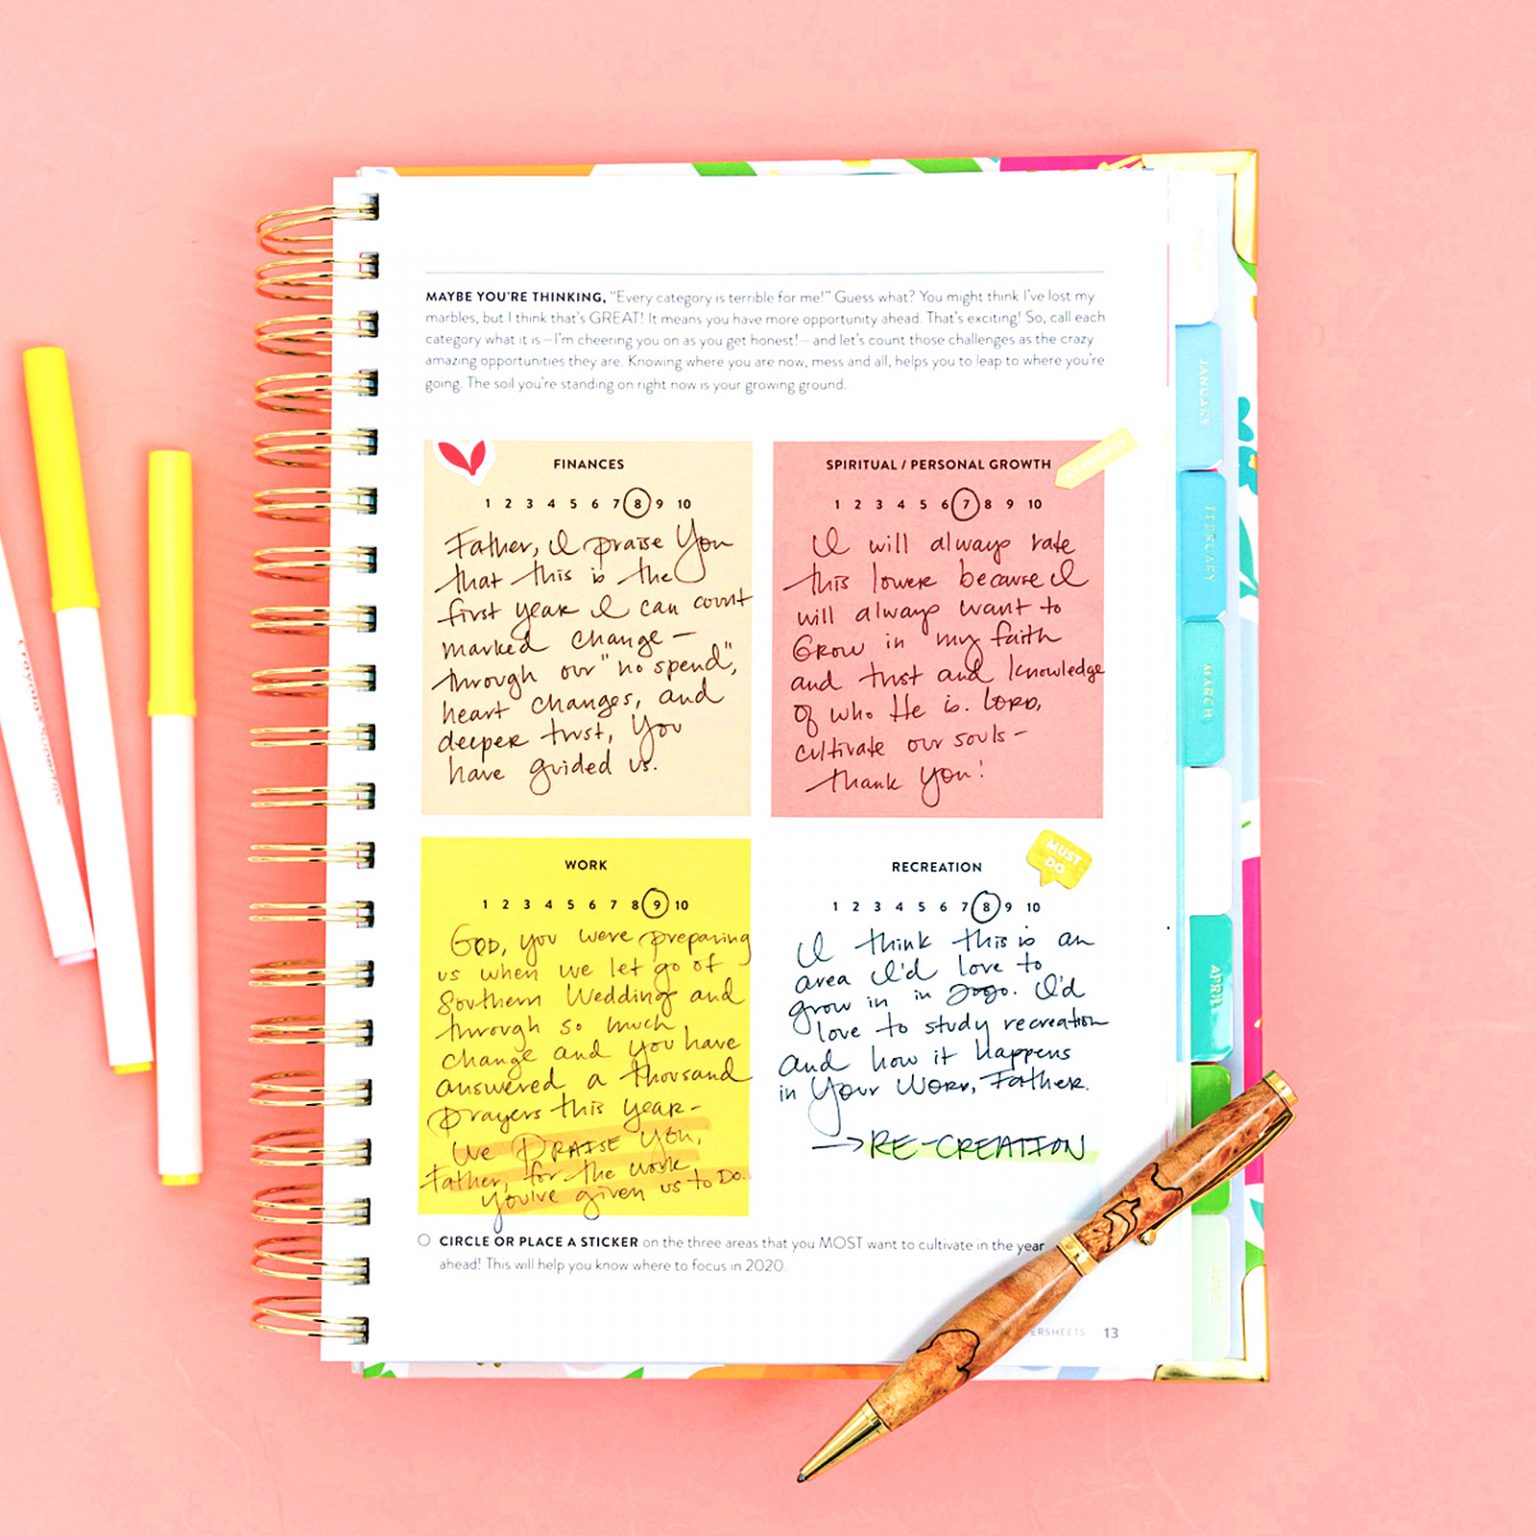 MAYBE YOU'RE THINKING, "Every category is terrible for me!" Guess what? You might think I've lost my
marbles, but I think that's GREAT! It means you have more opportunity ahead. That's exciting! So, call each
category what it is—I'm cheering you on as you get honest!—and let's count those challenges as the crazy
amazing opportunities they are. Knowing where you are now, mess and all, helps you to leap to where you're
going. The soil you're standing on right now is your growing ground.
FINANCES
1 2 3 4 5 6 7 8 9 10
Father, I praise You
that this is the
first year I can count
marked change —
through our "no spend",
heart changes, and
deeper trust, You
have guided us.
SPIRITUAL / PERSONAL GROWTH
1 2 3 4 5 6 7 8 9 10
I will always rate
this lower because I
will always want to
Grow in my faith
and trust and knowledge
of who He is. LORD,
cultivate our souls –
thank You!
WORK
1 2 3 4 5 6 7 8 9 10
GOD, you were preparing
us when we let go of
Southern Wedding and
through so much
change and you have
answered a thousand
prayers this year –
We PRAISE You,
Father, for the work
You've given us to DO.
RECREATION
MUST
DO
1 2 3 4 5 6 7 8 9 10
I think this is an
area I'd love to
grow in in 2020. I'd
love to study recreation
and how it happens
in Your WORD, Father.
→ RE-CREATION
CIRCLE OR PLACE A STICKER on the three areas that you MOST want to cultivate in the year
ahead! This will help you know where to focus in 2020.
ERSHEETS 13
JANUARY
FEBRUARY
MARCH
APRIL
JUNE
Crayola SuperTips